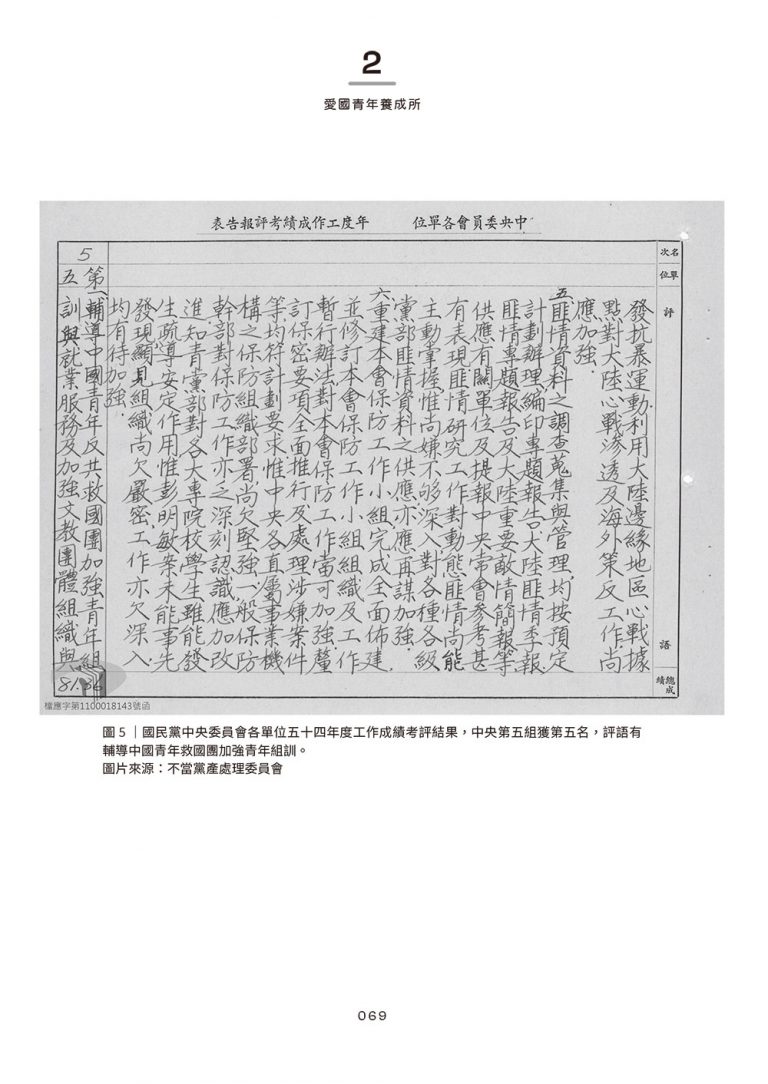 2
愛國青年養成所
中央委員會各單位年度工作成績考評報告表
名次
單位
評
語
總成績
發抗暴運動利用大陸邊緣地區心戰據
點對大陸心戰滲透及海外策反工作尚
應加強.
五匪情資料之調查蒐集與管理.均按預定
計劃辦理.編印專題報告大陸匪情季報.
匪情專題報告及大陸重要敵情簡報等
供應有關單位及提報中央常會參考甚
有表現.匪情研究工作對動態匪情尚能
主動掌握.惟尚嫌不够深入.對各種各級
黨部匪情資料之供應.亦應再謀加強.
六重建本會保防工作小組.完成全面佈建.
並修訂本會保防工作小組組織及工作
暫行辦法.對本會保防工作當可加強.釐
訂保密要項全面推行.及處理涉嫌案件
等均符計劃要求.惟中央各直屬事業機
構之保防組織部署尚欠堅強.一般保防
幹部對保防工作亦乏深刻認識.應加改
進.知青黨部對各大專院校學生雖能發
生疏導安定作用.惟彭明敏案未能事先
發現.顯見組織尚欠嚴密.工作亦欠深入.
均有待加強.
5
第五
一輔導中國青年反共救國團加強青年組
訓與就業服務及加強文教團體組織與
81.56
檔應字第1100018143號函
圖 5｜國民黨中央委員會各單位五十四年度工作成績考評結果，中央第五組獲第五名，評語有
輔導中國青年救國團加強青年組訓。
圖片來源：不當黨產處理委員會
069